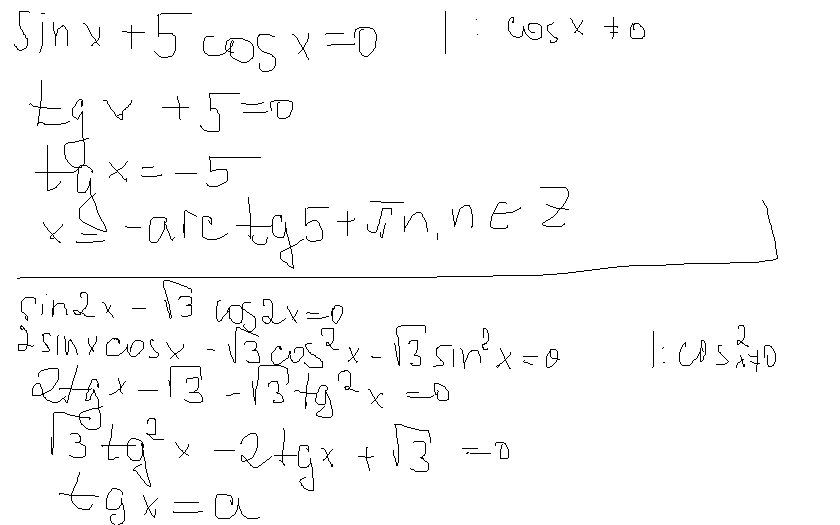 sin x + 5 cos x = 0 | : cos x ≠ 0
tg x + 5 = 0
tg x = -5
x = -arctg 5 + πn, n ∈ Z
sin2x - √3 cos2x = 0
2 sin x cos x - √3 cos²x - √3 sin²x = 0 |: cos²x ≠ 0
2tg x - √3 - √3 tg²x = 0
√3 tg²x - 2tg x + √3 = 0
tg x = a